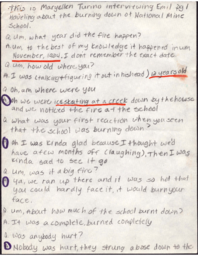 This is Maryellen Turino interviewing Emil
about the burning down of National Mine
School.
Q. Um, what year did the fire happen?
A. Um, to the best of my knowledge it happened in um
November, I dont remember the exact date.
Q. Um, how old where you?
A. I was (coughs, figuring it out in his head)
Q. Oh, um where were you
Oh we were ice skating at a creek down by the house
and we noticed the fire at the school
Q. What was your first reaction when you seen
that the school was burning down?
A. I was kinda glad because I thought we'd
have a few months off (laughing). Then I was
kinda sad to see it go
Q. um, was it a big fire?
Ya, we ran up there and it was so hot that
you could barely face it, it would burn your
face.
Q. um, about how much of the school burnt down?
A. It was a complete burned completely
Q. Was anybody hurt?
Nobody was hurt, they strung a hose down to the